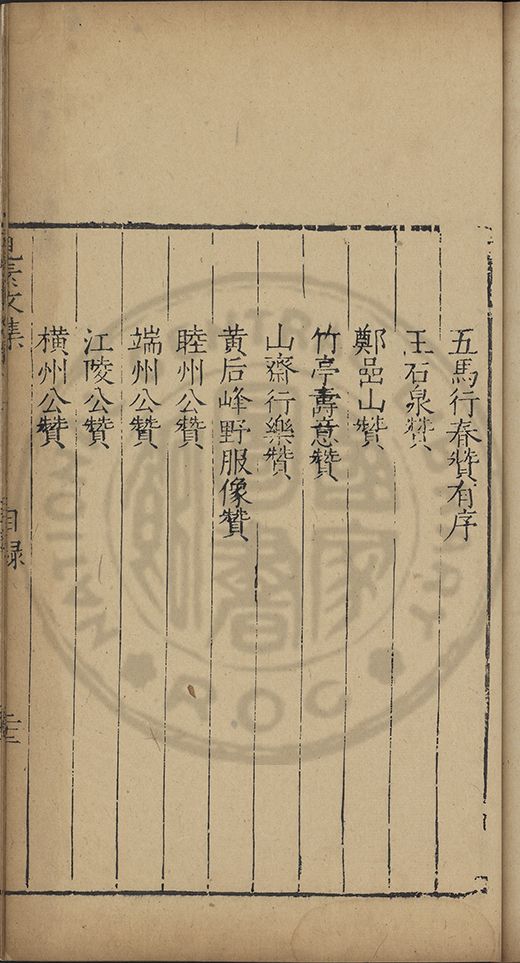 五馬行春贊有序
王石泉贊
鄭邑山贊
竹亭壽意贊
山齋行樂贊
黃后峰野服像贊
睦州公贊
端州公贊
江陵公贊
橫州公贊
文集
目錄